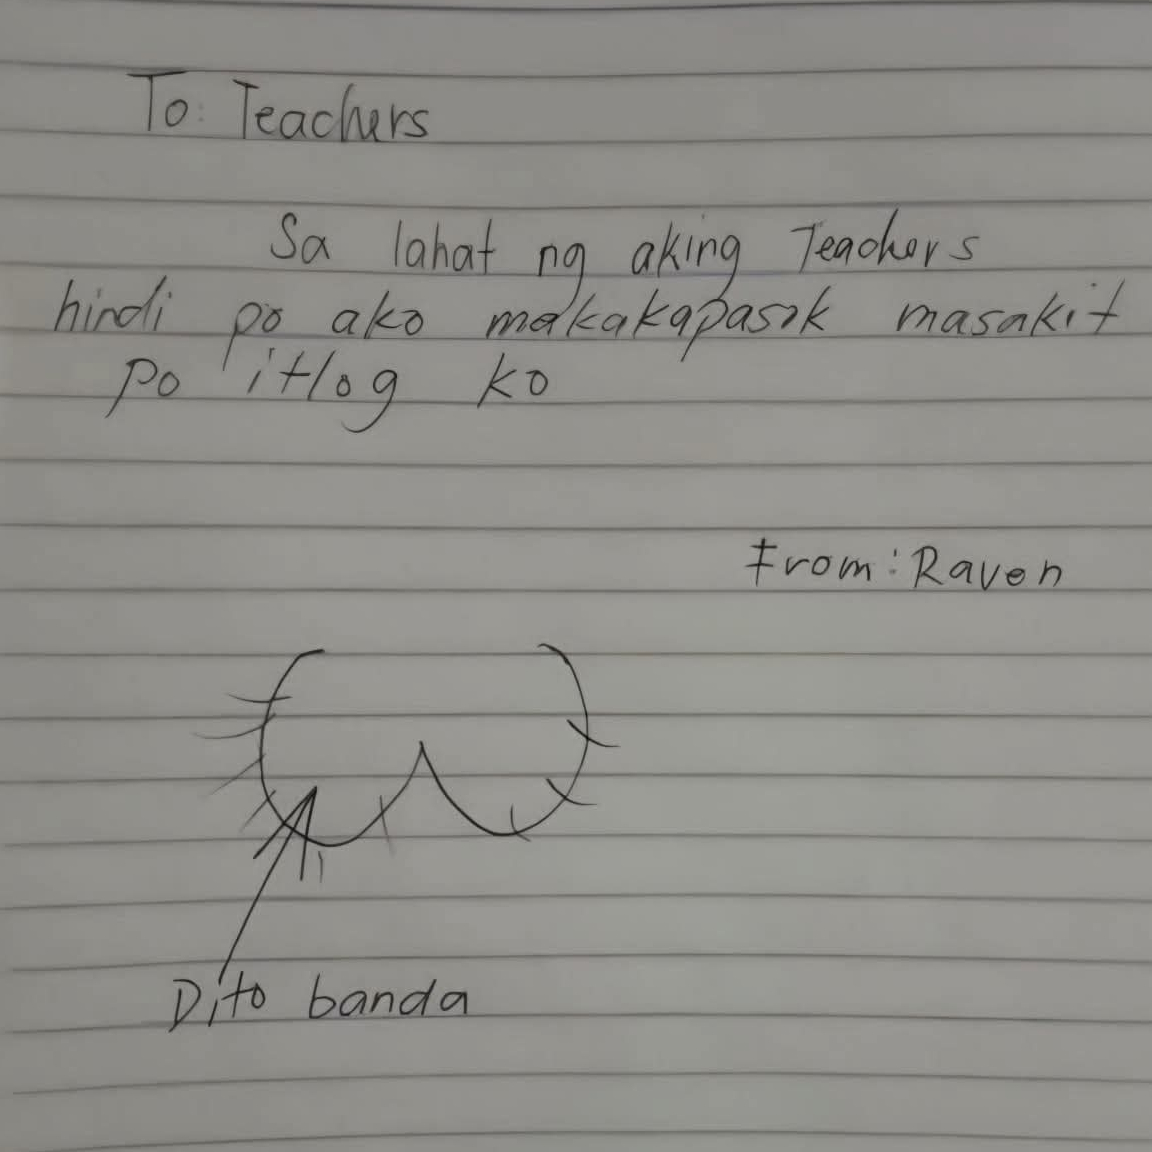 To: Teachers
Sa lahat ng aking Teachers
hindi po ako makakapasok masakit
po itlog ko
From: Raven
Dito banda